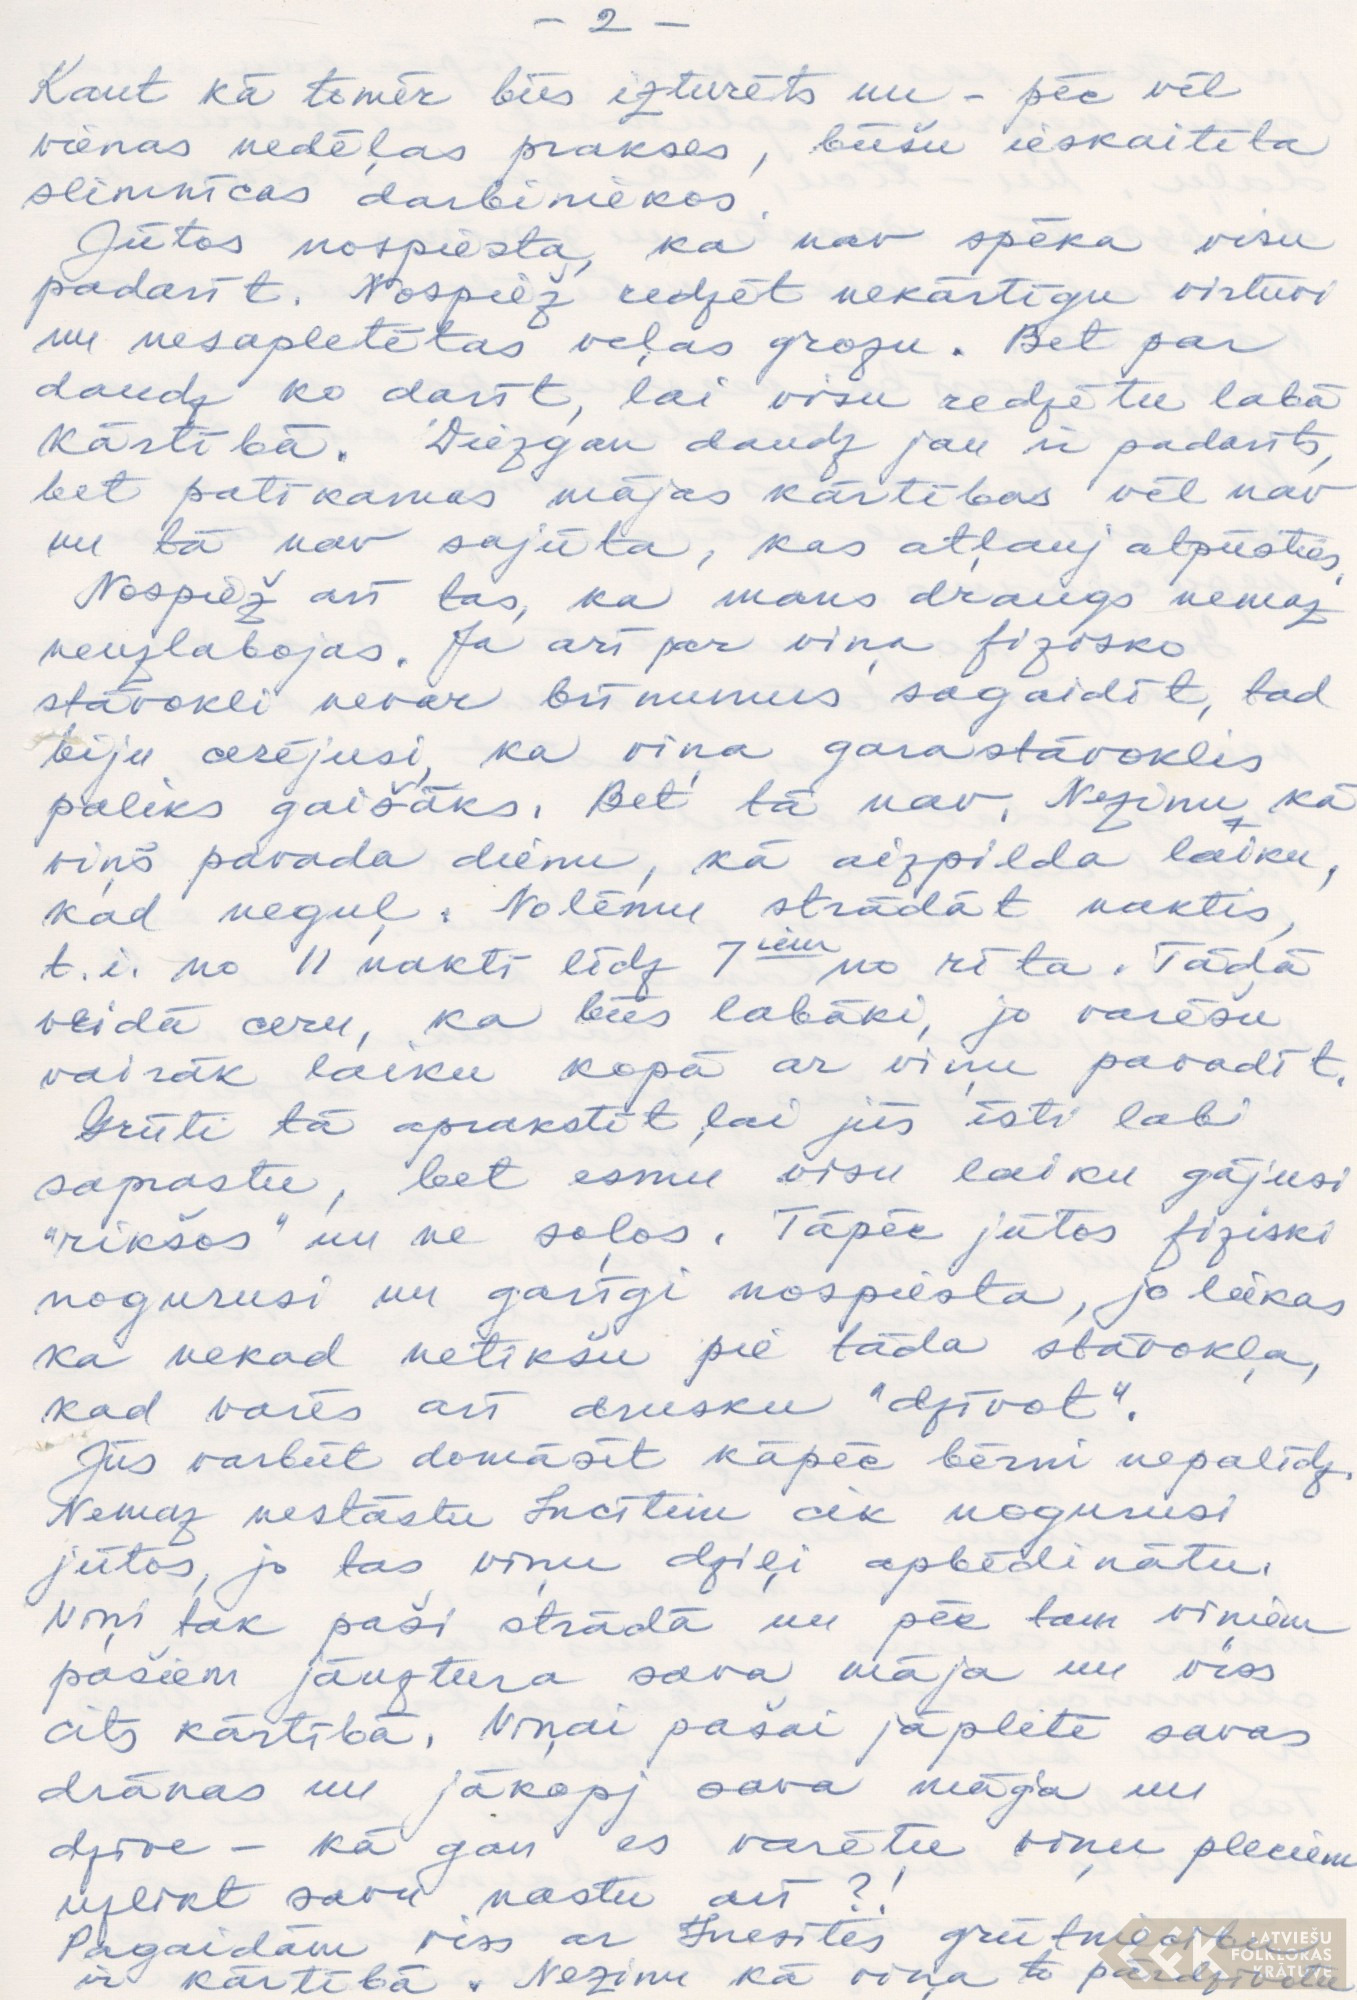 - 2 -
Kaut kā tomēr būs izturēts un - pēc vēl
vienas nedēļas prakses, būšu ieskaitīta
slimnīcas darbiniekos.
Jūtos nospiesta, ka nav spēka visu
padarīt. Nospiež redzēt nekārtīgu virtuvi
un nesapletētas veļas grozu. Bet par
daudz ko darīt, lai visu redzētu labā
kārtībā. Diezgan daudz jau ir padarīts,
bet patīkamas mājas kārtības vēl nav
un tā nav sajūta, kas atļauj atpūsties.
Nospiež arī tas, ka mans draugs nemaz
neuzlabojas. Ja arī par viņa fizisko
stāvokli nevar brīnumus sagaidīt, tad
biju cerējusi, ka viņa garastāvoklis
paliks gaišāks. Bet tā nav. Nezinu kā
viņš pavada dienu, kā aizpilda laiku,
kad neguļ. Nolēmu strādāt naktīs,
t.i. no 11 naktī līdz 7iem no rīta. Tādā
veidā ceru, ka būs labāki, jo varēšu
vairāk laiku kopā ar viņu pavadīt.
Grūti tā aprakstīt, lai jūs īsti labi
saprastu, bet esmu visu laiku gājusi
"rikšos" un ne soļos. Tāpēc jūtos fiziski
nogurusi un garīgi nospiesta, jo liekas
ka nekad netikšu pie tāda stāvokļa,
kad varēs arī drusku "dzīvot".
Jūs varbūt domāsit kāpēc bērni nepalīdz.
Nemaz nestāstu Incītim cik nogurusi
jūtos, jo tas viņu dziļi apbēdinātu.
Viņi tak paši strādā un pēc tam viņiem
pašiem jāuztura sava māja un viss
cits kārtībā. Viņai pašai jāpletē savas
drānas un jākopj sava māja un
dzīve - kā gan es varētu viņu pleciem
uzlikt savu nastu arī ?!
Pagaidām viss ar Inesītes
ir kārtībā. Nezinu kā viņa to pārdzīvotu
LATVIEŠU
FOLKLORAS
KRĀTUVE